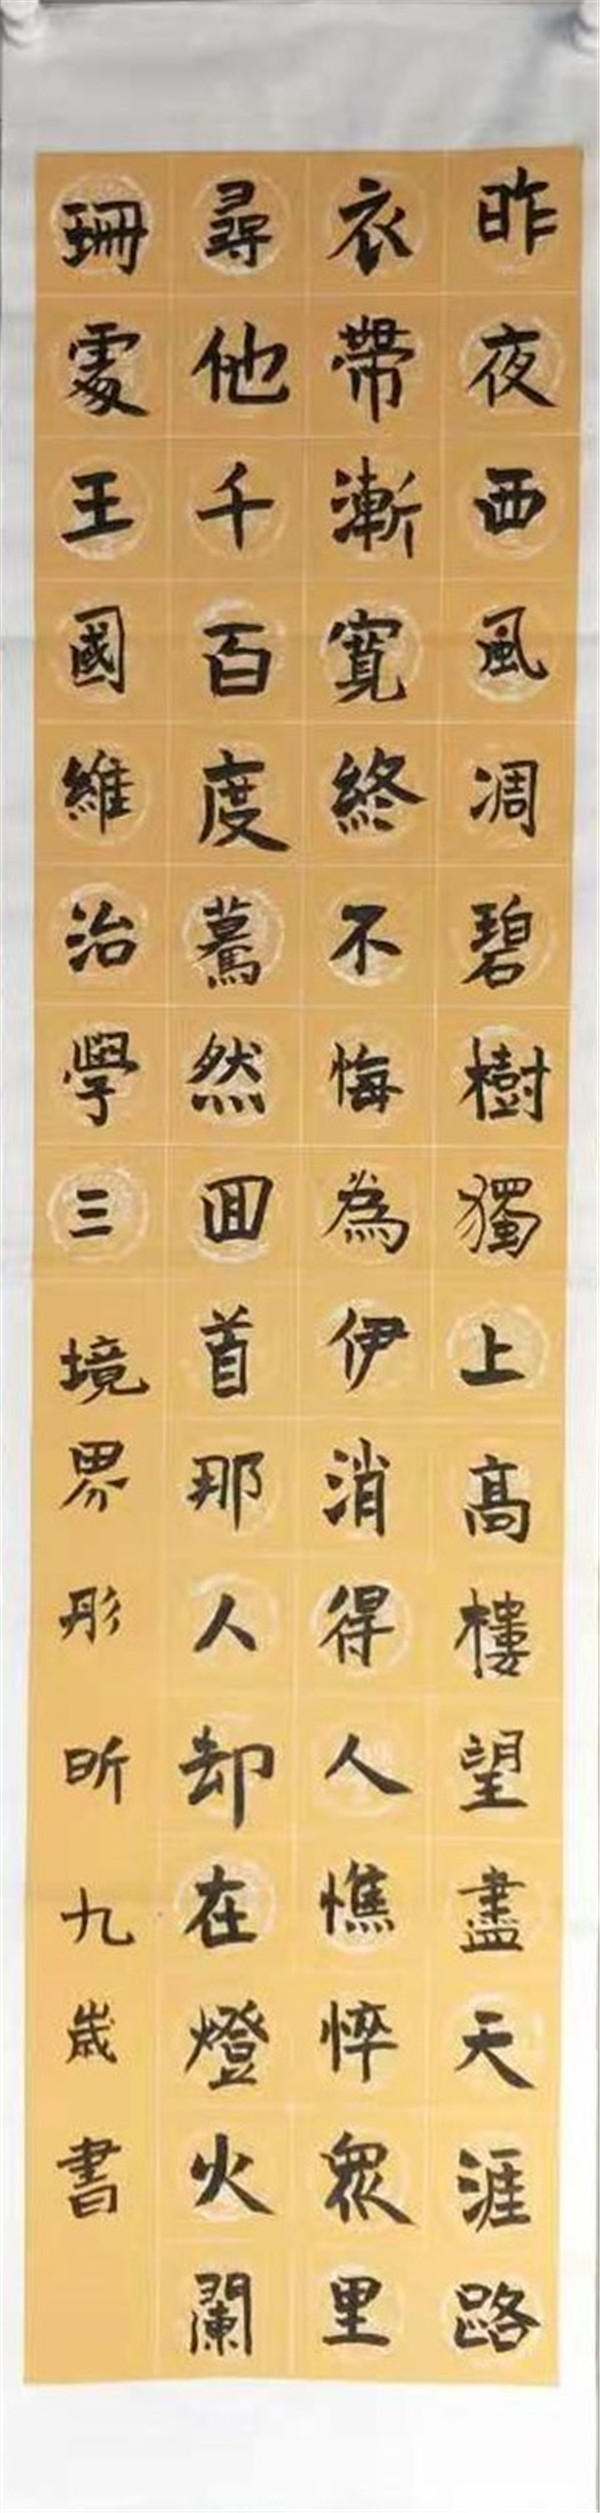 昨夜西風凋碧樹獨上高樓望盡天涯路
衣帶漸寬終不悔為伊消得人憔悴眾里
尋他千百度驀然回首那人却在燈火闌
珊處王國維治學三境界彤昕九歲書